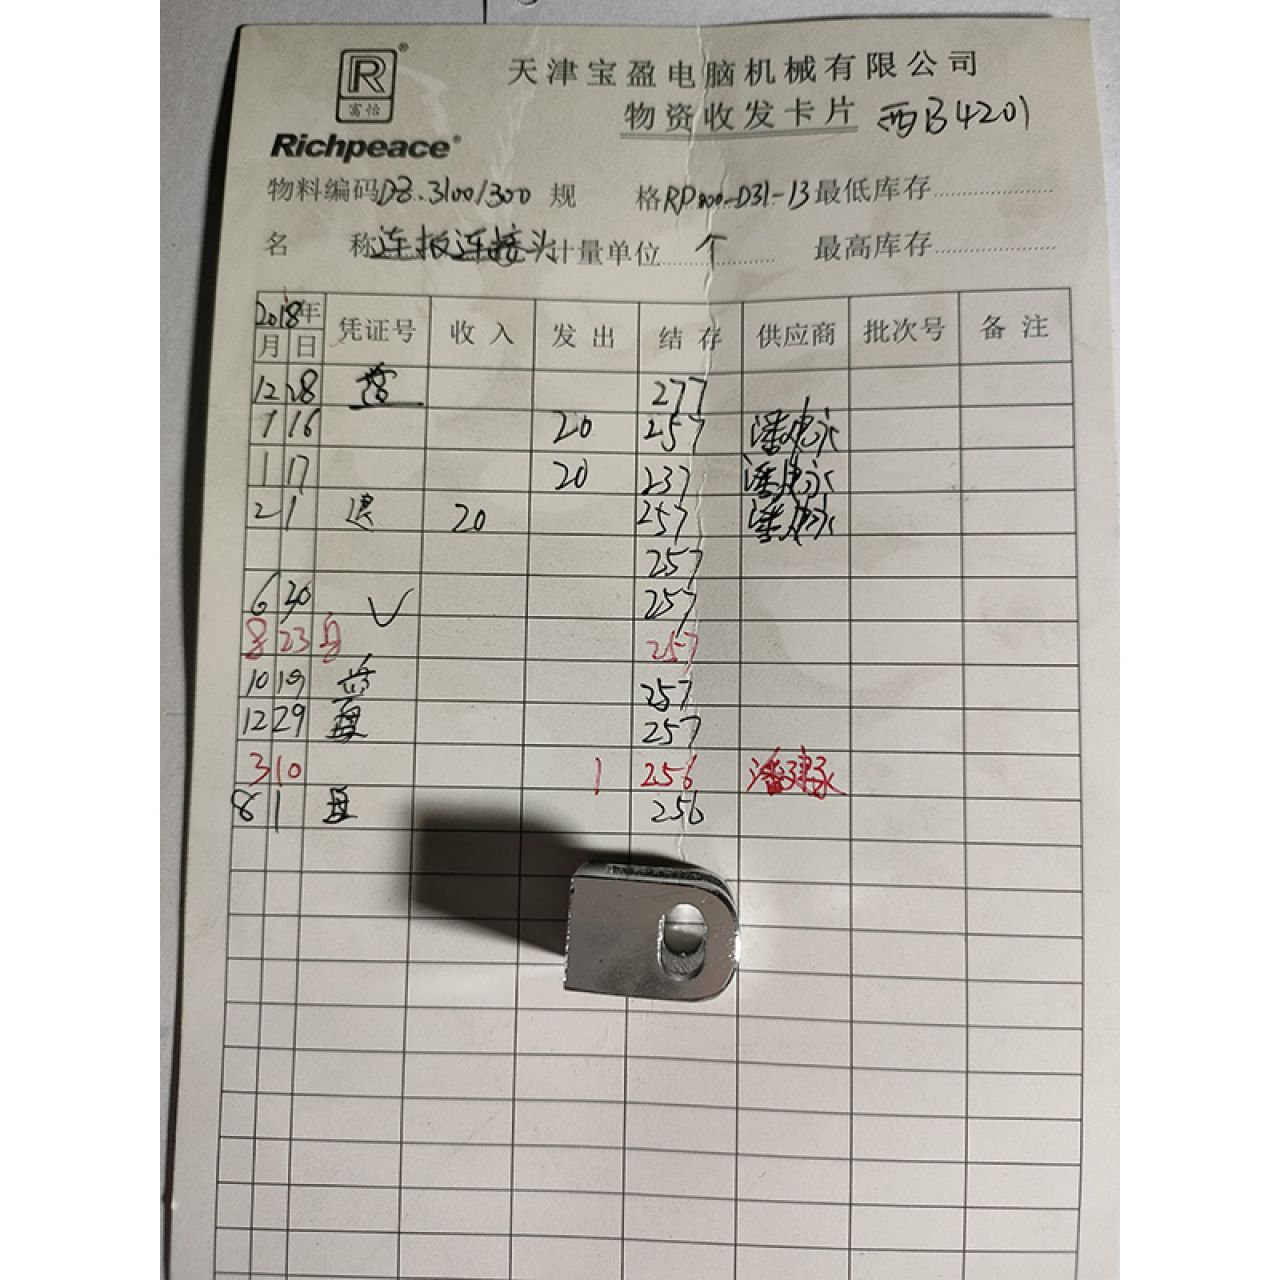 R®
富怡
Richpeace®
天津宝盈电脑机械有限公司
物资收发卡片 西B4201
物料编码DZ.3100/300 规 格RP800-D31-13最低库存
名 称连板连接头计量单位 个 最高库存
2018年 凭证号 收入 发出 结存 供应商 批次号 备注
月 日
12 28 盘 277
1 16 20 257
1 17 20 237
2 1 退 20 257
257
6 30 257
8 23 257
10 19 盘 257
12 29 盘 257
3 10 1 256
8 1 盘 256